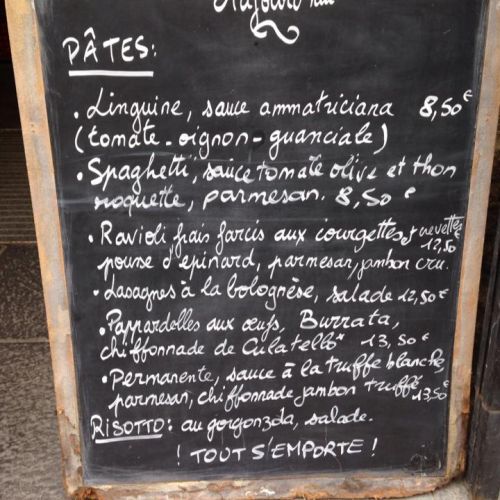 Aujourd'hui
PÂTES:
• Linguine, sauce ammatriciana 8,50€
(tomate - oignon - guanciale)
• Spaghetti, sauce tomate olive et thon
roquette, parmesan. 8,50€
• Ravioli frais farcis aux courgettes, crevettes
12,50€
pousse d'épinard, parmesan, jambon cru.
• Lasagnes à la bolognèse, salade 12,50€
• Pappardelles aux œufs, Burrata,
chiffonnade de Culatello" 13,50€
• Permanente, sauce à la truffe blanche,
parmesan, chiffonnade jambon truffé 13,50€
RISOTTO: au gorgonzola, salade.
! TOUT S'EMPORTE !